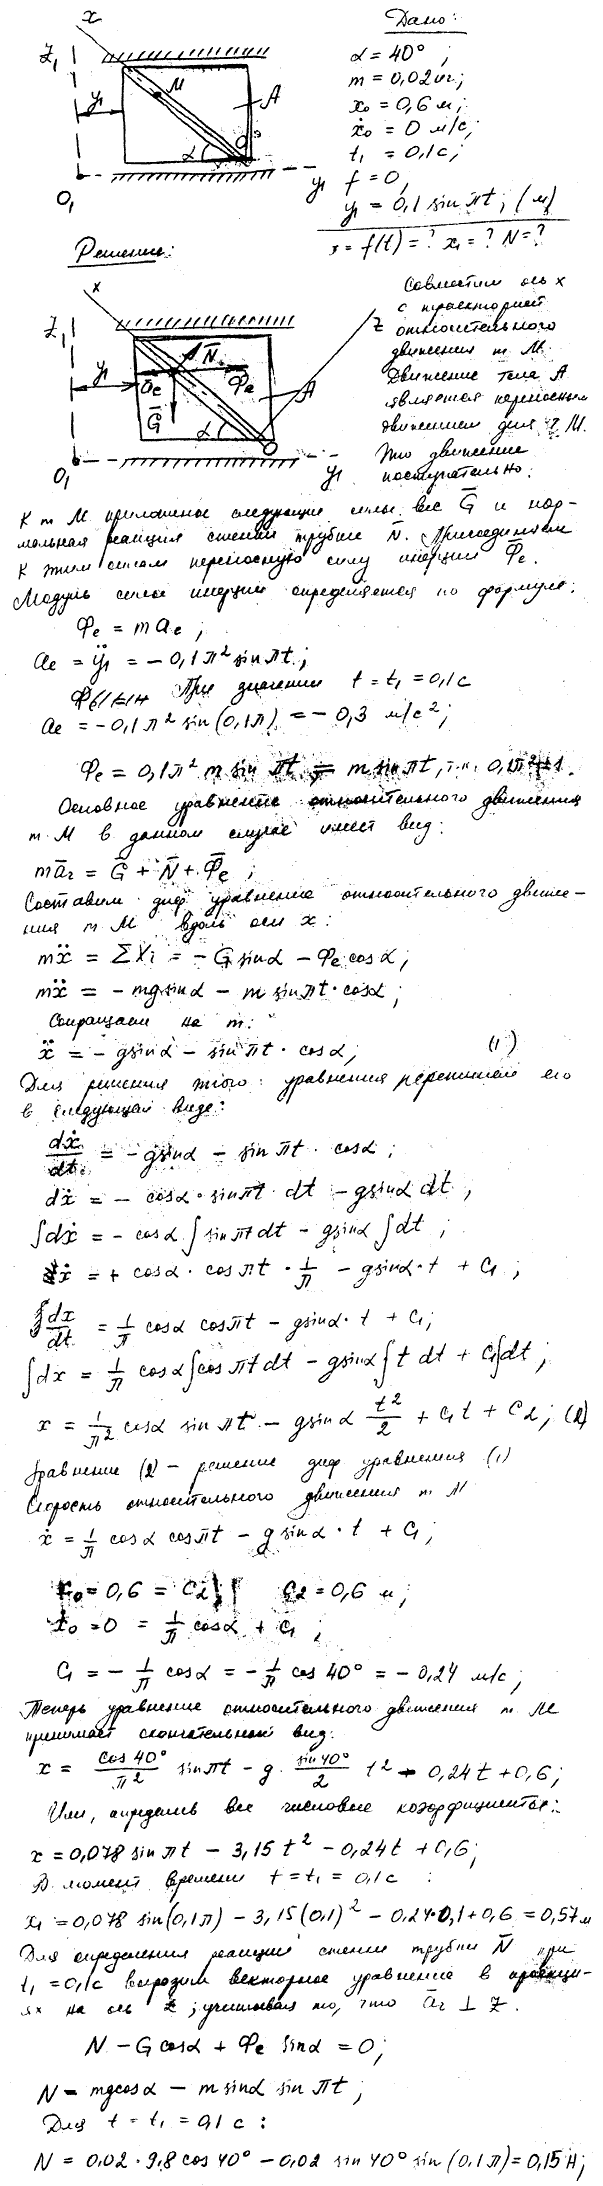 x
Z₁
y₁
M
A
α
O
O₁
y₁
Дано:
α = 40° ;
m = 0,02 кг;
x₀ = 0,6 м;
ẋ₀ = 0 м/с;
t₁ = 0,1 с;
f = 0,
y₁ = 0,1 sin πt; (м)
x = f(t) = ? x₁ = ? N = ?
Решение:
x
Z₁
z
y₁
N̄
Φ̄e
āe
A
Ḡ
α
O₁
y₁
Совместим ось x
с траекторией
относительного
движения т. M.
Движение тела A
является переносным
движением для т. M.
Это движение
поступательно.
К т M приложение следующие силы: вес Ḡ и нор-
мальная реакция стенки трубки N̄. Присоединяем
к этим силам переносную силу инерции Φ̄e.
Модуль силы инерции определяется по формуле:
Φe = m ae ;
ae = ÿ₁ = - 0,1 π² sin πt ;
При значении t = t₁ = 0,1 с
ae = - 0,1 π² sin (0,1π) = - 0,3 м/с² ;
Φe = 0,1 π² m sin πt = m sin πt, т.к. 0,1π² ≠ 1.
Основное уравнение относительного движения
т. M в данном случае имеет вид:
m ār = Ḡ + N̄ + Φ̄e ;
Составим диф уравнение относительного движе-
ния т. M вдоль оси x :
mẍ = ΣXi = - G sinα - Φe cosα ;
mẍ = - mg sinα - m sin πt · cosα ;
Сокращаем на m:
ẍ = - g sinα - sin πt · cosα ; (1)
Для решения этого уравнения перепишем его
в следующем виде:
dẋ/dt = - g sinα - sin πt · cosα ;
dẋ = - cosα · sin πt · dt - g sinα dt ;
∫dẋ = - cosα ∫ sin πt dt - g sinα ∫ dt ;
ẋ = + cosα · cos πt · 1/π - g sinα · t + C₁ ;
dx/dt = 1/π cosα cos πt - g sinα · t + C₁;
∫dx = 1/π cosα ∫ cos πt dt - g sinα ∫ t dt + C₁∫dt ;
x = 1/π² cosα sin πt - g sinα t²/2 + C₁ t + C₂ ; (2)
Уравнение (2) - решение диф уравнения (1)
Скорость относительного движения т. M
ẋ = 1/π cosα cos πt - g sinα · t + C₁ ;
x₀ = 0,6 = C₂ ; C₂ = 0,6 м ;
ẋ₀ = 0 = 1/π cosα + C₁ ;
C₁ = - 1/π cosα = - 1/π cos 40° = - 0,24 м/с ;
Теперь уравнение относительного движения т. M
принимает окончательный вид:
x = cos 40°/π² sin πt - g · sin 40°/2 t² - 0,24 t + 0,6 ;
Или, определив все числовые коэффициенты:
x = 0,078 sin πt - 3,15 t² - 0,24t + 0,6 ;
В момент времени t = t₁ = 0,1 с :
x₁ = 0,078 sin(0,1π) - 3,15 (0,1)² - 0,24·0,1 + 0,6 = 0,57 м
Для определения реакции стенки трубки N̄ при
t₁ = 0,1 с выразим векторное уравнение в проекци-
ях на ось z ; учитывая то, что ār ⊥ z.
N - G cosα + Φe sinα = 0 ;
N = mg cosα - m sinα sin πt ;
Для t = t₁ = 0,1 с :
N = 0,02 · 9,8 cos 40° - 0,02 sin 40° sin (0,1π) = 0,15 Н ;